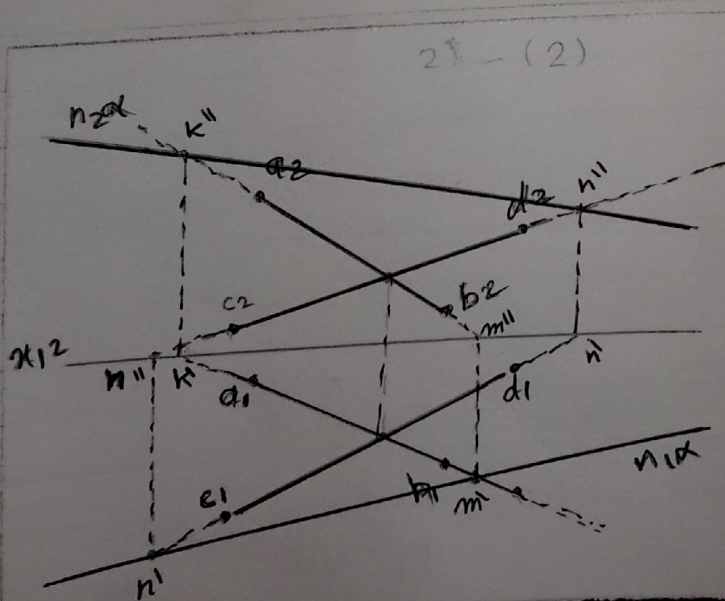 2) - (2)
n₂α
k"
a2
d2
n"
c2
b2
m"
x₁2
n"
k'
a₁
d₁
n'
c₁
b₁
m'
n₁α
n'